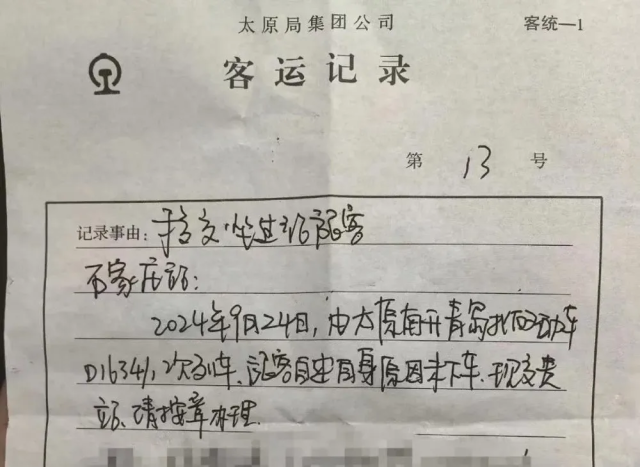 太原局集团公司 客统—1
客运记录
第 13 号
记录事由: 移交坐过站旅客
石家庄站:
2024年9月24日,由太原南开青岛北的动车
D1634/1次列车、旅客因自身原因未下车、现交贵
站、请按章办理.